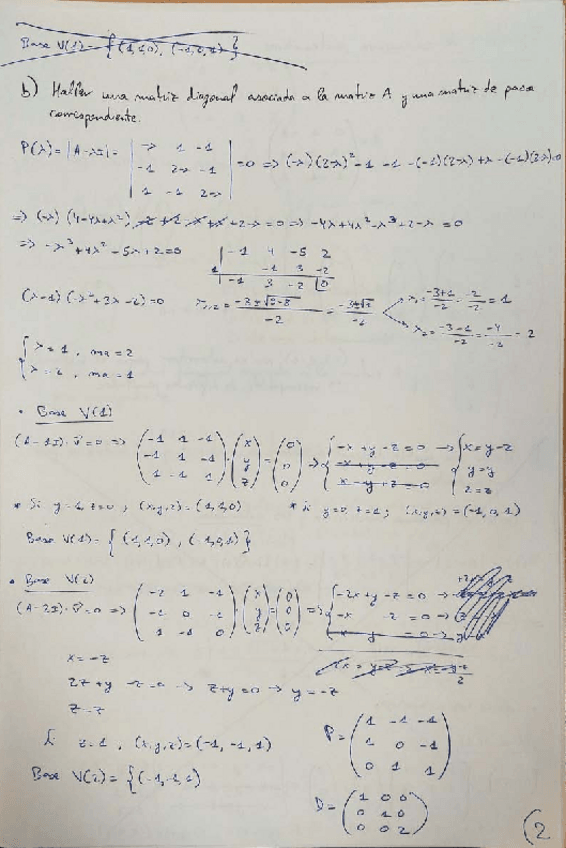 Base V(1) = { (1,1,0), (-1,0,1) }
b) Hallar una matriz diagonal asociada a la matriz A y una matriz de paso
correspondiente.
P(λ) = |A-λI| = | -λ 1 -1 | -1 2-λ -1 | 1 -1 2-λ | = 0 => (-λ)(2-λ)² -1 -1 -(-1)(2-λ) +λ -(-1)(2-λ)=0
=> (-λ)(4-4λ+λ²) +2-λ = 0 => -4λ+4λ²-λ³+2-λ = 0
=> -λ³+4λ²-5λ+2=0
-1 4 -5 2
1 -1 3 -2
-1 3 -2 0
(λ-1)(-λ²+3λ-2)=0 λ₁,₂ = (-3±√9-8)/-2 = (-3±√1)/-2
λ₁ = (-3+1)/-2 = -2/-2 = 1
λ₂ = (-3-1)/-2 = -4/-2 = 2
{ λ=1, ma=2
λ=2, ma=1
• Base V(1)
(A-1I)·v̄=0 => ( -1 1 -1 | -1 1 -1 | 1 -1 1 ) · ( x y z ) = ( 0 0 0 ) => { -x+y-z=0 → { x=y-z
-x+y-z=0 y=y
x-y+z=0 z=z
* Si y=1, z=0; (x,y,z)=(1,1,0) * Si y=0, z=1; (x,y,z)=(-1,0,1)
Base V(1) = { (1,1,0), (-1,0,1) }
• Base V(2)
(A-2I)·v̄=0 => ( -2 1 -1 | -1 0 -1 | 1 -1 0 ) · ( x y z ) = ( 0 0 0 ) => { -2x+y-z=0 →
-x -z=0 →
x-y =0 → y
x=-z
2z+y-z=0 → z+y=0 → y=-z
z=z
Si z=1, (x,y,z)=(-1,-1,1)
Base V(2) = {(-1,-1,1)
P = ( 1 -1 -1 | 1 0 -1 | 0 1 1 )
D = ( 1 0 0 | 0 1 0 | 0 0 2 )
2